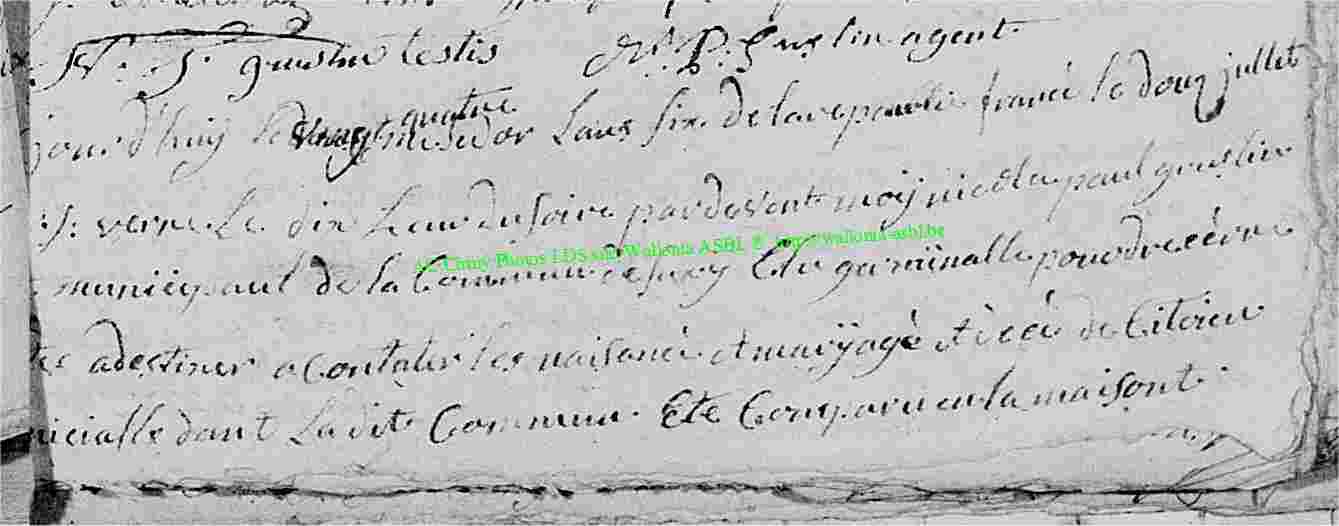 N: J: gruslin testis N: P: gruslin agent
jourd'huij le vingt quatre mesidor Lans six de la republi francé le douz jullet
J: verne Le dix heur du soire par devent moij nicola paul gruslin
municypaul de la Commun de suxÿ Elu gerninalle pour dre
adestiner a Contater les naisance et marijage et de Citoien
nicialle dant La dit Commun Ete Comparu en la maisont
AC Chiny Photos LDS sur Wallonia ASBL © http://wallonia-asbl.be